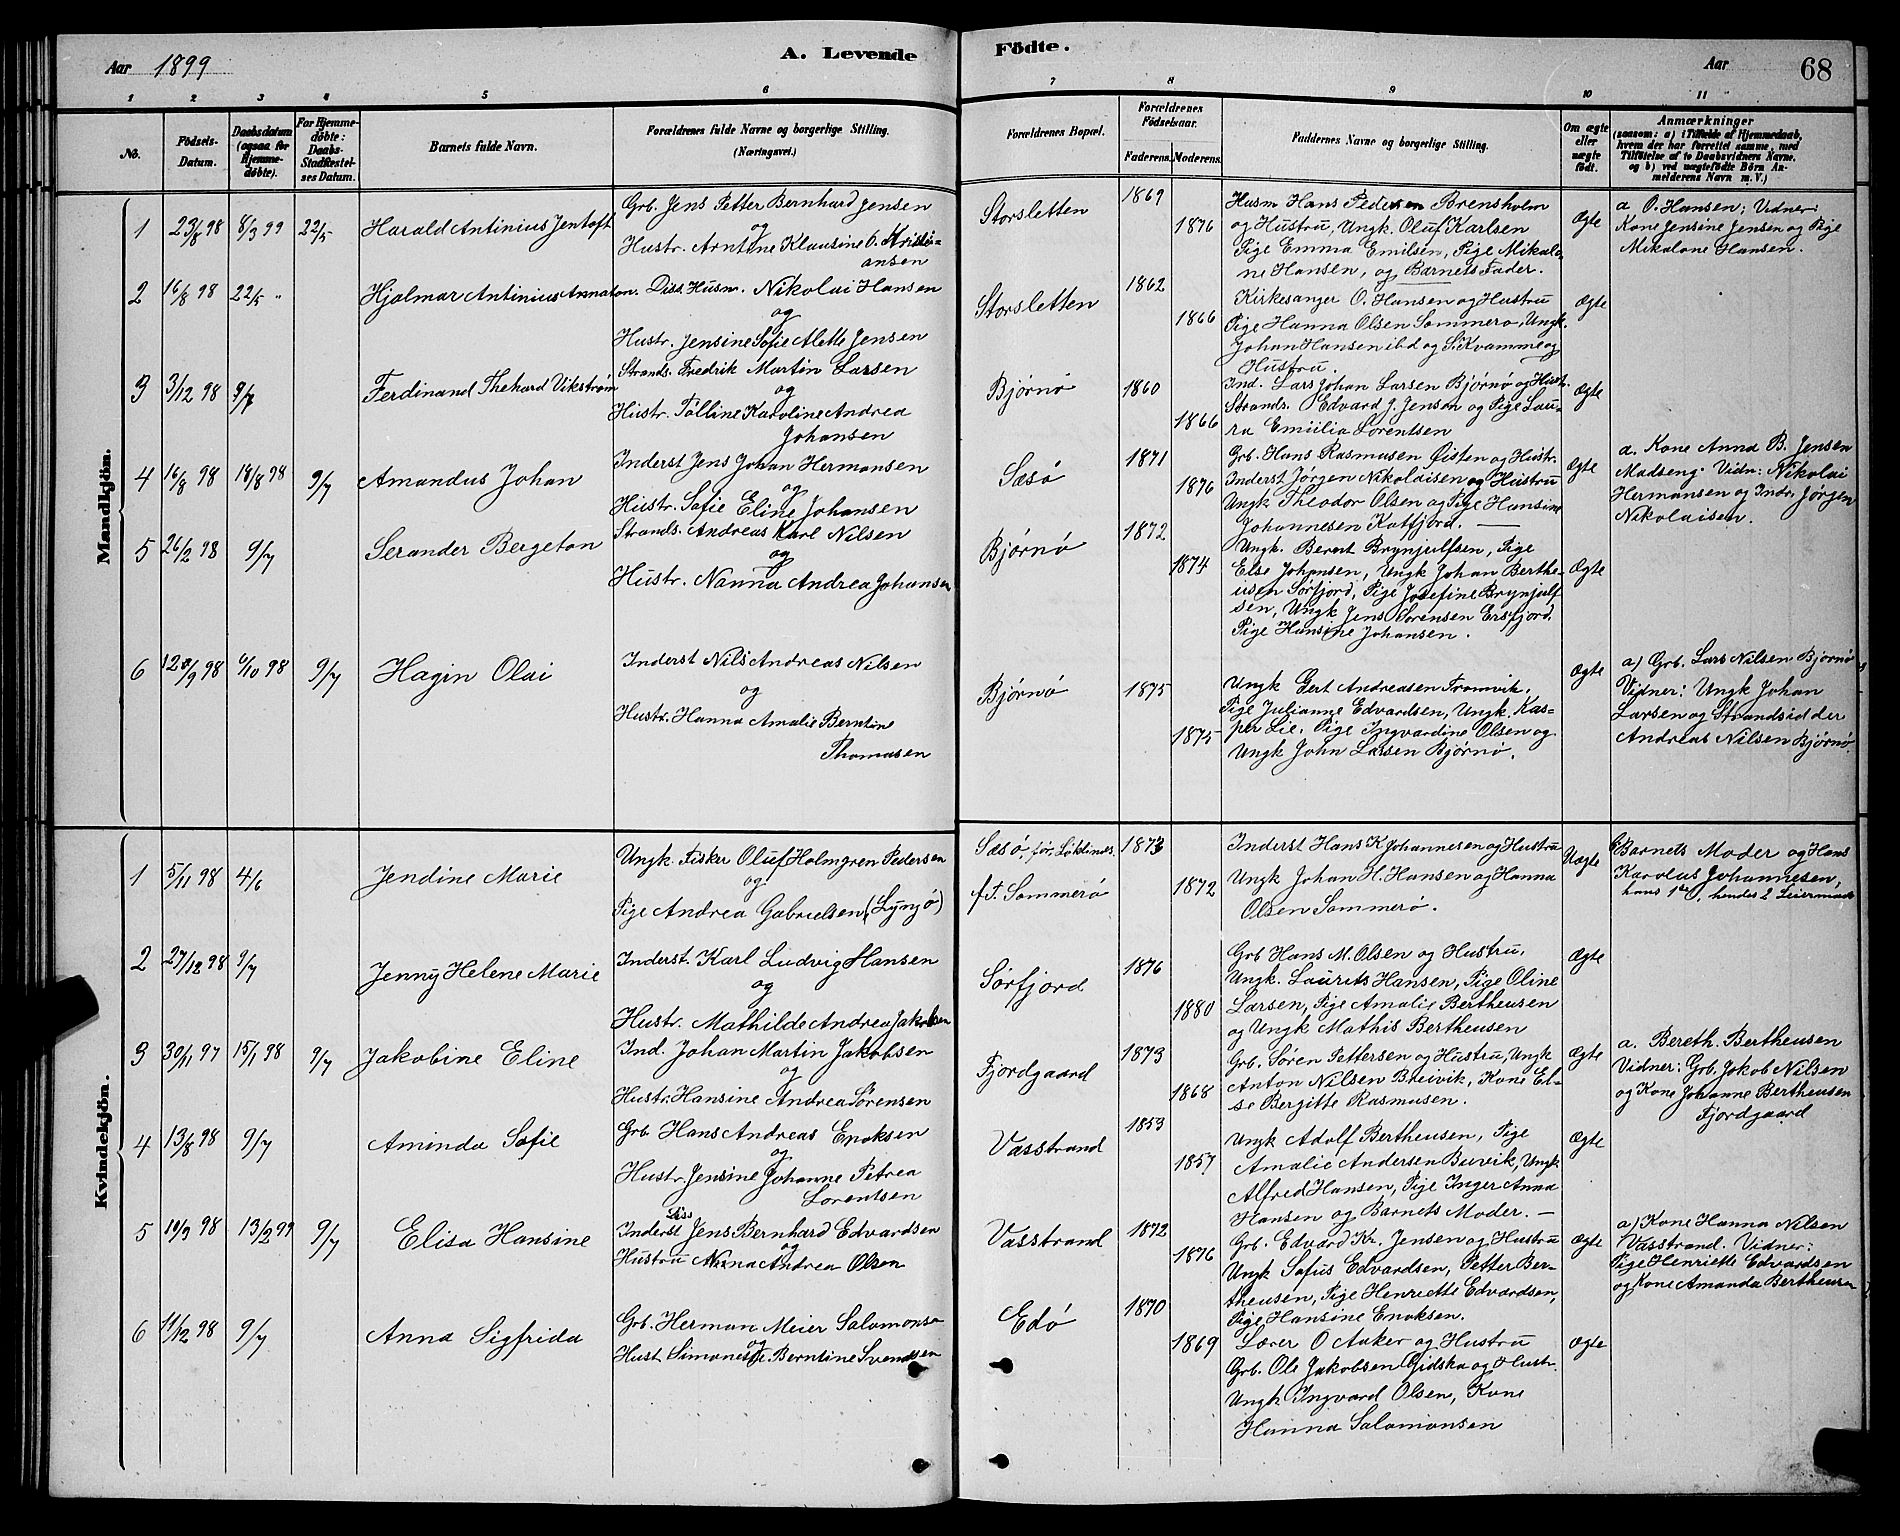 Aar 1899
A. Levende
Födte.
Aar
68
1 2 3 4 5 6 7 8 9 10 11
No.
Födsels-
Datum.
Daabsdatum
(ogsaa for
Hjemme-
döbte).
For Hjemme-
döbte:
Daabs-
Stadfæstel-
ses Datum.
Barnets fulde Navn.
Forældrenes fulde Navne og borgerlige Stilling.
(Næringsvei.)
Forældrenes Bopæl.
Forældrenes
Födselsaar.
Faderens. Moderens.
Faddernes Navne og borgerlige Stilling.
Om ægte
eller
uægte
født.
Anmærkninger
(saasom: a) i Tilfælde af Hjemmedaab,
hvem der har forrettet samme, med
Tilföielse af to Daabsvidners Navne,
og b) ved uægtefödte Börn An-
melderens Navn m. V.)
Mandkjön.
1 23/8 98 8/3 99 22/5 Harald Antinius Jentoft
Grb. Jens Petter Bernhard Jensen
og
Hustr. Arntine Klausine O. Kristi-
ansen
Storsletten 1869 1876
Husm Hans Pedersen Brensholm
og Hustru, Ungk. Oluf Karlsen
Pige Emma Emilsen, Pige Mikalo-
ne Hansen, og Barnets Fader.
Ægte
a O. Hansen; Vidner:
Kone Jensine Jensen og Pige
Mikalone Hansen.
2 16/8 98 22/5 " Hjalmar Antinius Annaton.
Diss. Husm. Nikolai Hansen
og
Hustr. Jensine Sofie Alette Jensen
Storsletten 1862 1866
Kirkesanger O. Hansen og Hustru
Pige Hanna Olsen Sommerø, Ungk.
Johan Hansen ibd og S. Kvamme og
Hustru.
Ægte
3 3/12 98 9/7 Ferdinand Thekard Vikstrøm
Strands. Fredrik Martin Larsen
og
Hustr. Tolline Karoline Andrea
Johansen
Bjørnø 1860 1866
Ind. Lars Johan Larsen Bjørnø og Hust.
Strands. Edvard J. Jensen og Pige Lau-
ra Emiilia Lorentsen
Ægte
4 16/8 98 18/8 98 9/7 Amandus Johan
Inderst Jens Johan Hermansen
og
Hustr. Sofie Eline Johansen
Sæsø 1871 1876
Grb. Hans Rasmusen Øisten og Hustr.
Inderst Jørgen Nikolaisen og Hustru
Ungk Theodor Olsen og Pige Hansine
Johannesen Katfjord.
Ægte
a. Kone Anna B. Jensen
Madseng. Vidn: Nikolai
Hermansen og Indr. Jørgen
Nikolaisen.
5 26/2 98 9/7 Serander Bergeton
Strands. Andreas Karl Nilsen
og
Hustr. Nanna Andrea Johansen
Bjørnø 1872 1874
Ungk. Bernt Brynjulfsen, Pige
Else Johansen, Ungk Johan Berthe-
usen Sørfjord, Pige Josefine Brynjulf
sen, Ungk Jens Sørensen Ersfjord,
Pige Hansine Johansen.
Ægte
6 12/9 98 6/10 98 9/7 Hagin Olai
Inderst Nils Andreas Nilsen
og
Hustr. Hanna Amalie Berntine
Thomasen
Bjørnø 1875 1875
Ungk Gert Andreasen Tromvik.
Pige Julianne Edvardsen, Ungk. Kas-
per Lie, Pige Ingvardine Olsen og
Ungk John Larsen Bjørnø.
Ægte
a) Grb. Lars Nilsen Bjørnø
Vidner: Ungk Johan
Larsen og Strandsidder
Andreas Nilsen Bjørnø.
Kvindekjön.
1 5/11 98 4/6 Jendine Marie
Ungk. Fisker Oluf Holmgren Pedersen
og
Pige Andrea Gabrielsen (Lynjø)
Sæsø, før
f.t. Sommerø 1873 1872
Inderst Hans K Johannesen og Hustru
Ungk Johan H. Hansen og Hanna
Olsen Sommerø.
Uægte
Barnets Moder og Hans
Karolus Johannesen,
hans 1ste, hendes 2 Leiermaal
2 27/12 98 9/7 Jenny Helene Marie
Inderst. Karl Ludvig Hansen
og
Hustr. Mathilde Andrea Jakobsen
Sørfjord 1876 1880
Grb Hans M. Olsen og Hustru,
Ungk. Laurits Hansen, Pige Oline
Larsen, Pige Amalie Bertheusen
og Ungk Mathis Bertheusen
Ægte
3 30/11 97 15/1 98 9/7 Jakobine Eline
Ind. Johan Martin Jakobsen
og
Hustr. Hansine Andrea Sørensen
Fjordgaard 1873 1868
Grb. Søren Pettersen og Hustru, Ungk
Anton Nilsen Breivik, Kone El-
se Bergitte Rasmusen.
Ægte
a. Bereth. Bertheusen
Vidner: Grb. Jakob Nilsen
og Kone Johanne Bertheusen
Fjordgaard
4 13/8 98 9/7 Aminda Sofie
Grb. Hans Andreas Enoksen
og
Hustr. Jensine Johanne Petrea
Lorentsen
Vasstrand 1853 1857
Ungk Adolf Bertheusen, Pige
Amalie Andersen Buvik, Ungk
Alfred Hansen, Pige Inger Anna
Hansen og Barnets Moder.
Ægte
5 10/3 98 13/2 99 9/7 Elisa Hansine
Diss
Inderst Jens Bernhard Edvardsen
og
Hustru Nanna Andrea Olsen
Vasstrand 1872 1876
Grb. Edvard Kr. Jensen og Hustru
Ungk Sofus Edvardsen, Petter Ber-
theusen, Pige Henriette Edvardsen,
Pige Hansine Enoksen.
Ægte
a) Kone Hanna Nilsen
Vasstrand. Vidner:
Pige Henriette Edvardsen
og Kone Amanda Bertheusen
6 11/12 98 9/7 Anna Sigfrida
Grb. Herman Meier Salomonsen
og
Hust Simonette Berntine Svendsen
Edø 1870 1869
Lærer O Aaker og Hustru
Grb. Ole Jakobsen Gidska og Hustr.
Ungk Ingvard Olsen, Kone
Hanna Salamonsen
Ægte